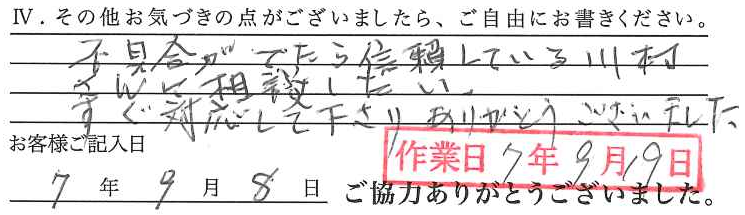 Ⅳ．その他お気づきの点がございましたら、ご自由にお書きください。
不具合がでたら信頼している川村
さんに相談したい。
すぐ対応して下さりありがとうございました
お客様ご記入日
作業日 7年9月19日
7 年 9 月 8 日 ご協力ありがとうございました。